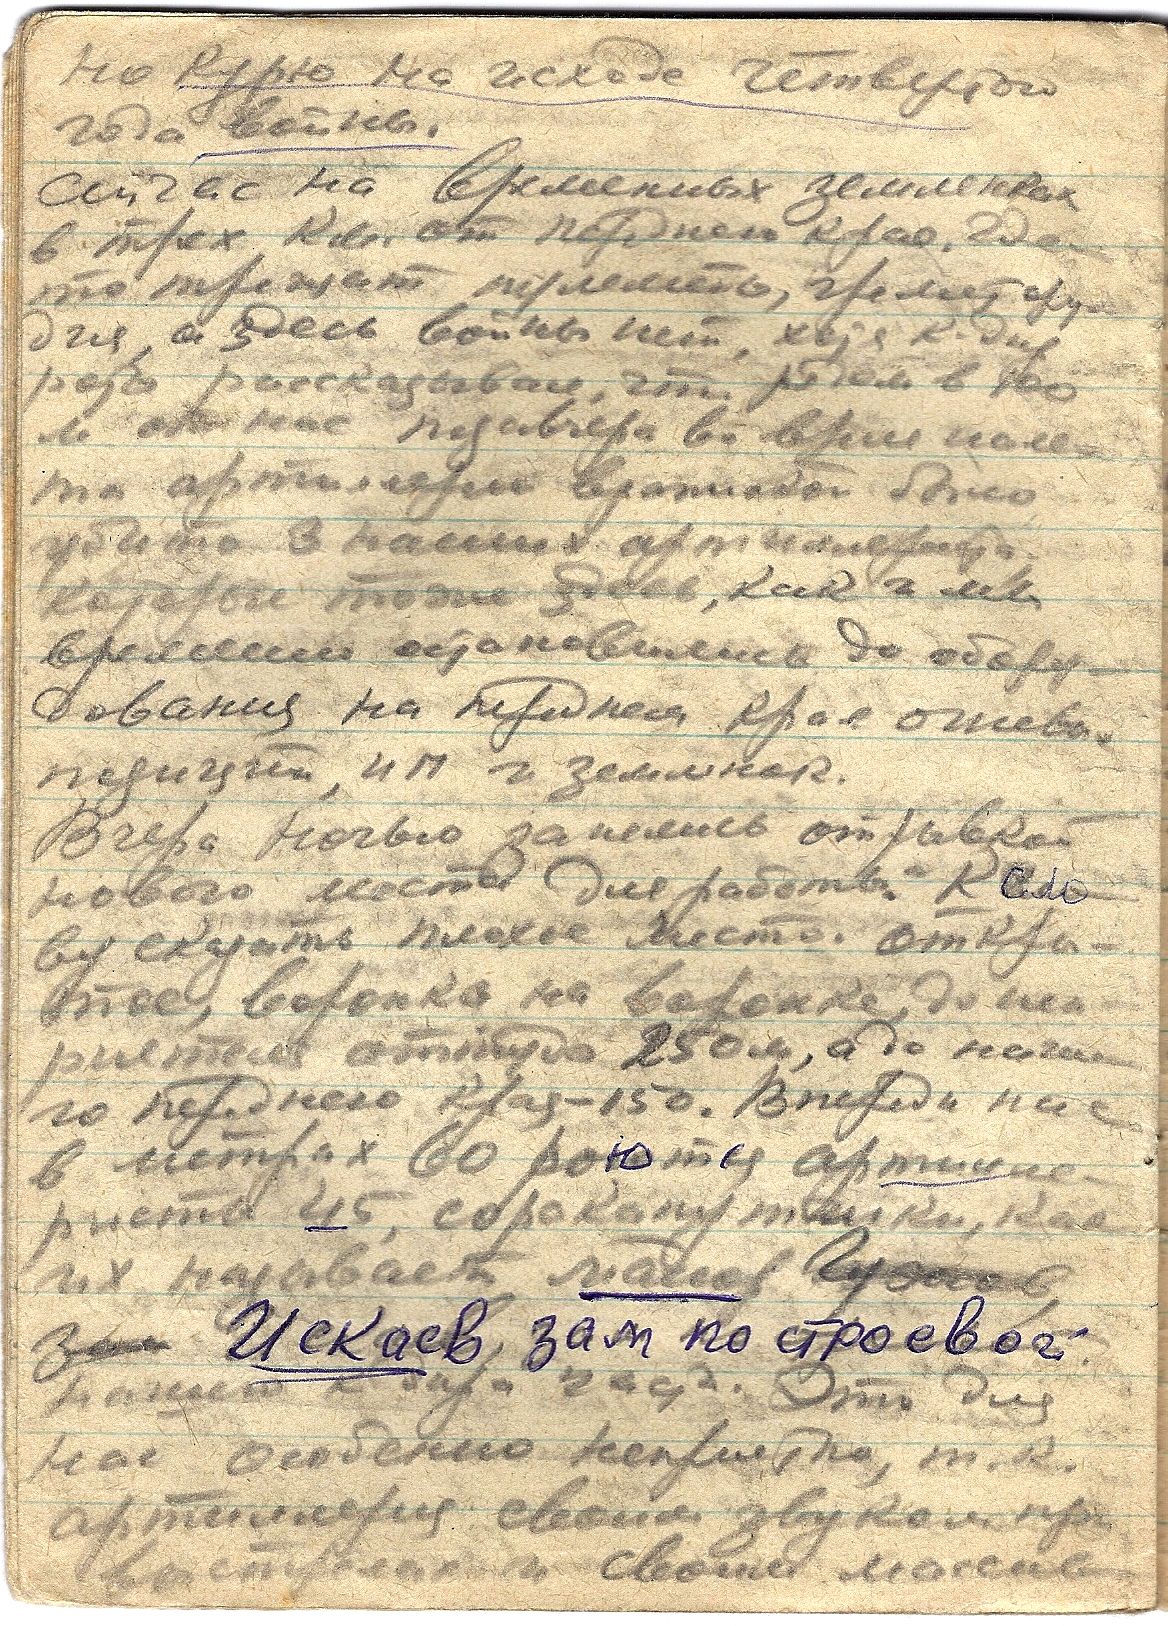 но курю на исходе четвертого
года войны.
Сейчас на временных землянках
в трех км. от переднего края. Где-
то трещат пулеметы, гремят ору-
дия, а здесь войны нет, хотя к-дир
роты рассказывал, что рядом в 100
м от нас позавчера во время нале-
та артиллерии вражеской было
убито 3 наших артиллериста
которые тоже здесь, как и мы
временно остановились до обору-
дования на переднем крае огнев.
позиций, НП и землянок.
Вчера ночью занялись отрывкой
нового места для работы. К сло
ву сказать плохое место. Откры-
тое, воронка на воронке, до не
приятеля оттуда 250 м, а до наше
го переднего края – 150. Впереди нас
в метрах 60 роются артилле-
ристы 45, сорокапутники, как
их называет майор
Искаев, зам по строевой
нашего к-дира части. Это для
нас особенно неприятно, т.к.
артиллерия своим звуком при
выстрелах и своими